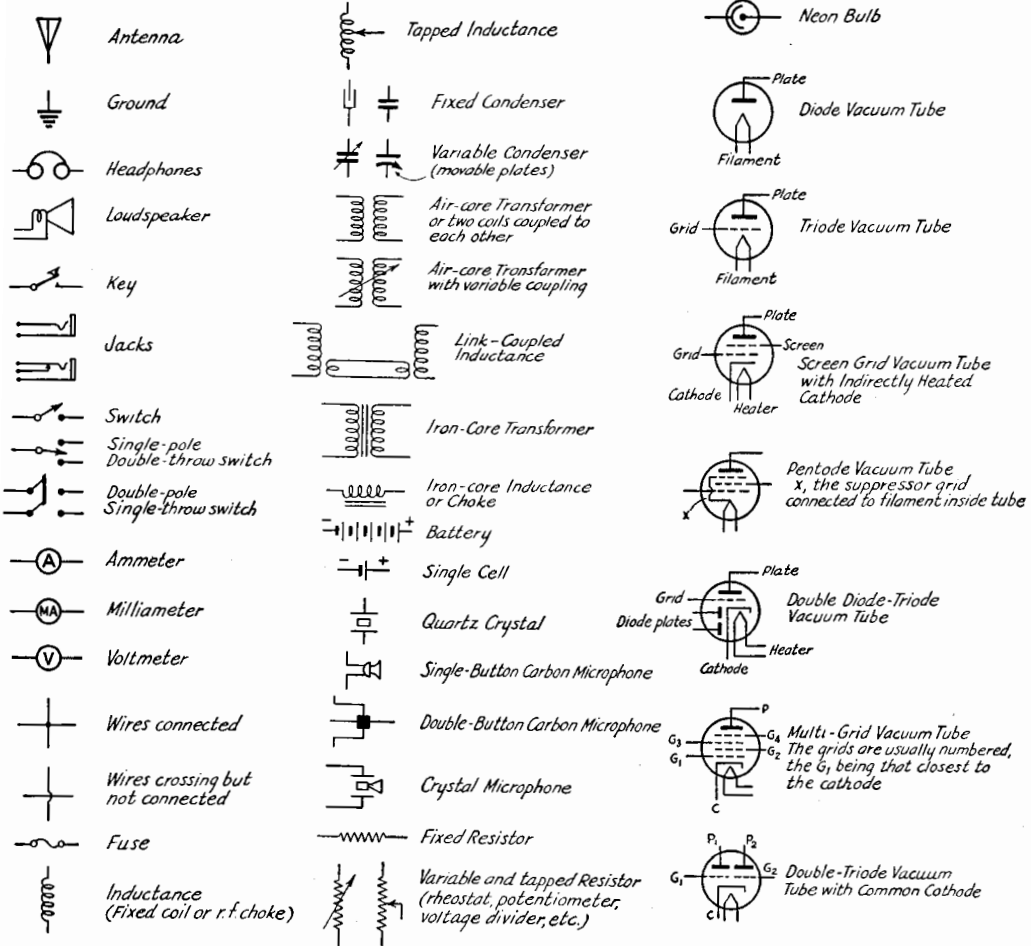 Antenna
Ground
Headphones
Loudspeaker
Key
Jacks
Switch
Single-pole
Double-throw switch
Double-pole
Single-throw switch
A
Ammeter
MA
Milliameter
V
Voltmeter
Wires connected
Wires crossing but
not connected
Fuse
Inductance
(Fixed coil or r.f. choke)
Tapped Inductance
Fixed Condenser
Variable Condenser
(movable plates)
Air-core Transformer
or two coils coupled to
each other
Air-core Transformer
with variable coupling
Link-Coupled
Inductance
Iron-Core Transformer
Iron-core Inductance
or Choke
- +
Battery
- +
Single Cell
Quartz Crystal
Single-Button Carbon Microphone
Double-Button Carbon Microphone
Crystal Microphone
Fixed Resistor
Variable and tapped Resistor
(rheostat, potentiometer,
voltage divider, etc.)
Neon Bulb
Plate
Diode Vacuum Tube
Filament
Plate
Grid
Triode Vacuum Tube
Filament
Plate
Screen
Grid
Screen Grid Vacuum Tube
with Indirectly Heated
Cathode
Cathode
Heater
Pentode Vacuum Tube
X, the suppressor grid
connected to filament inside tube
X
Plate
Grid
Double Diode-Triode
Vacuum Tube
Diode plates
Heater
Cathode
P
G4
G3
G2
G1
Multi-Grid Vacuum Tube
The grids are usually numbered,
the G1 being that closest to
the cathode
C
P1 P2
G1
G2
Double-Triode Vacuum
Tube with Common Cathode
C